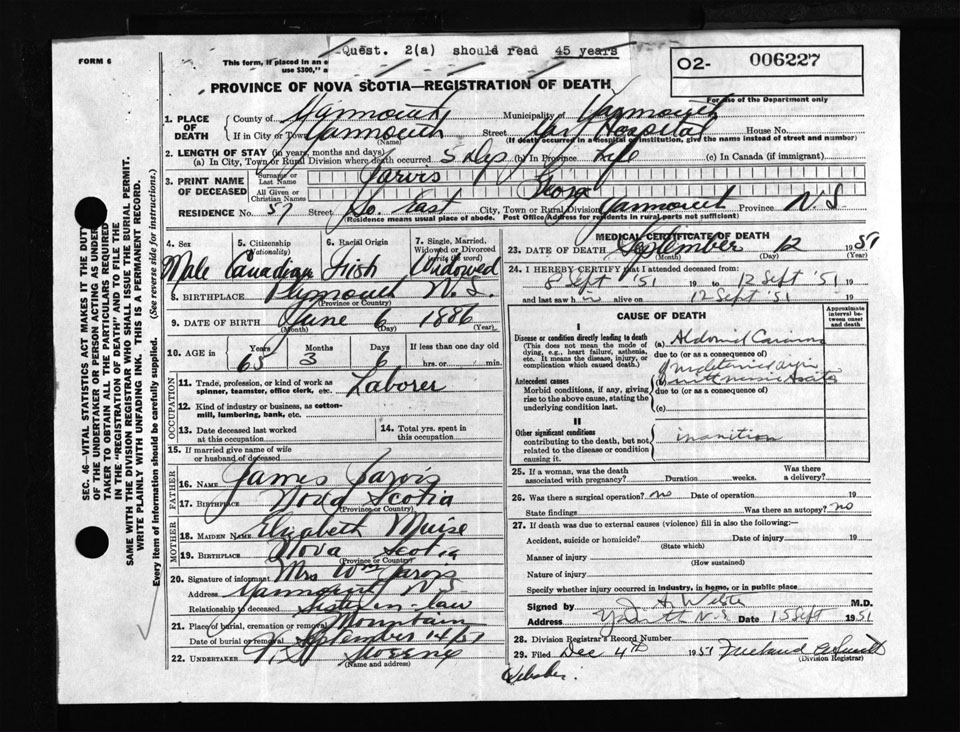 Quest. 2(a) should read 45 years
FORM 6
This form, if placed in an e
use $300," a
O2- 006227
For use of the Department only
PROVINCE OF NOVA SCOTIA—REGISTRATION OF DEATH
1. PLACE OF DEATH County of Yarmouth Municipality of Yarmouth
If in City or Town Yarmouth Street Yar. Hospital House No.
(Name) (If death occurred in a hospital or institution, give the name instead of street and number)
2. LENGTH OF STAY (in years, months and days)
(a) In City, Town or Rural Division where death occurred 5 Dys (b) in Province Life (c) In Canada (if immigrant)
3. PRINT NAME OF DECEASED Surname or Last Name Jarvis
All Given or Christian Names George
RESIDENCE No. 57 Street So. East City, Town or Rural Division Yarmouth Province N.S.
(Residence means usual place of abode. Post Office Address for residents in rural parts not sufficient)
4. Sex 5. Citizenship (Nationality) 6. Racial Origin 7. Single, Married, Widowed or Divorced (write the word)
Male Canadian Irish Widowed
8. BIRTHPLACE Plymouth N.S.
(Province or Country)
9. DATE OF BIRTH June 6 1886
(Month) (Day) (Year)
10. AGE in Years Months Days If less than one day old
65 3 6 hrs. or min.
OCCUPATION
11. Trade, profession, or kind of work as spinner, teamster, office clerk, etc. Laborer
12. Kind of industry or business, as cotton-mill, lumbering, bank, etc.
13. Date deceased last worked at this occupation 14. Total yrs. spent in this occupation
15. If married give name of wife or husband of deceased
FATHER
16. NAME James Jarvis
17. BIRTHPLACE Nova Scotia
(Province or Country)
MOTHER
18. MAIDEN NAME Elizabeth Muise
19. BIRTHPLACE Nova Scotia
(Province or Country)
20. Signature of informant Mrs Wm Jarvis
Address Yarmouth N.S
Relationship to deceased Sister-in-law
21. Place of burial, cremation or removal Mountain
Date of burial or removal September 14/51
22. UNDERTAKER Sweeny
(Name and address)
MEDICAL CERTIFICATE OF DEATH
23. DATE OF DEATH September 12 1951
(Month) (Day) (Year)
24. I HEREBY CERTIFY that I attended deceased from:
8 Sept '51 19 to 12 Sept '51 19
and last saw h im alive on 12 Sept '51 19
CAUSE OF DEATH Approximate interval between onset and death
I
Disease or condition directly leading to death (a)
(This does not mean the mode of dying, e.g., heart failure, asthenia, etc. It means the disease, injury, or complication which caused death.)
due to (or as a consequence of)
Antecedent causes (b)
Morbid conditions, if any, giving rise to the above cause, stating the underlying condition last.
due to (or as a consequence of)
(c)
II
Other significant conditions contributing to the death, but not related to the disease or condition causing it. inanition
25. If a woman, was the death associated with pregnancy? Duration weeks. Was there a delivery?
26. Was there a surgical operation? no Date of operation 19
State findings Was there an autopsy? no
27. If death was due to external causes (violence) fill in also the following:—
Accident, suicide or homicide? Date of injury 19
(State which)
Manner of injury
(How sustained)
Nature of injury
Specify whether injury occurred in industry, in home, or in public place
Signed by M.D.
Address N.S. Date 15 Sept 1951
28. Division Registrar's Record Number
29. Filed Dec 4th 1951
(Division Registrar)
SEC. 46—VITAL STATISTICS ACT MAKES IT THE DUTY
OF THE UNDERTAKER OR PERSON ACTING AS UNDER-
TAKER TO OBTAIN ALL THE PARTICULARS REQUIRED
IN THE "REGISTRATION OF DEATH" AND TO FILE THE
SAME WITH THE DIVISION REGISTRAR WHO SHALL ISSUE THE BURIAL PERMIT.
WRITE PLAINLY WITH UNFADING INK. THIS IS A PERMANENT RECORD.
Every item of information should be carefully supplied. (See reverse side for instructions.)